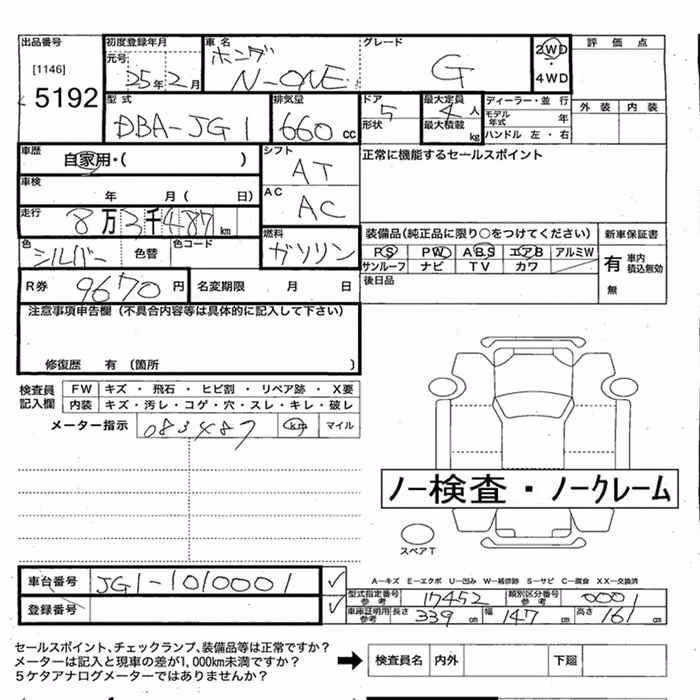 出品番号 初度登録年月 車名 グレード 評価点
[1146] 元号 ホンダ G 2WD
5192 25年2月 N-ONE ・4WD
型式 排気量 ドア 最大定員 ディーラー・並行 外装 内装
DBA-JG1 660cc 5 4人 モデル年式 年
形状 最大積載 kg ハンドル 左・右
車歴 自家用・( ) シフト AT 正常に機能するセールスポイント
車検 年 月( 日) AC AC
走行 8万3千487km 燃料 ガソリン 装備品(純正品に限り○をつけてください) 新車保証書
色 シルバー 色替 色コード PS PW ABS エアB アルミW 有 車内積込無効
サンルーフ ナビ TV カワ
R券 9670円 名変期限 月 日 後日品 無
注意事項申告欄(不具合内容等は具体的に記入して下さい)
修復歴 有(箇所 )
検査員記入欄 FW キズ・飛石・ヒビ割・リペア跡・X要
内装 キズ・汚レ・コゲ・穴・スレ・キレ・破レ
メーター指示 083487 km マイル
ノー検査・ノークレーム
スペアT
車台番号 JG1-1010001 ✓
A−キズ E−エクボ U−凹み W−補修跡 S−サビ C−腐食 XX−交換済
登録番号 ✓ 型式指定番号参考 17452 類別区分番号参考 0001
車庫証明用参考 長さ 339cm 幅 147cm 高さ 161cm
セールスポイント、チェックランプ、装備品等は正常ですか?
メーターは記入と現車の差が1,000km未満ですか?
5ケタアナログメーターではありませんか?
検査員名 内外 下廻